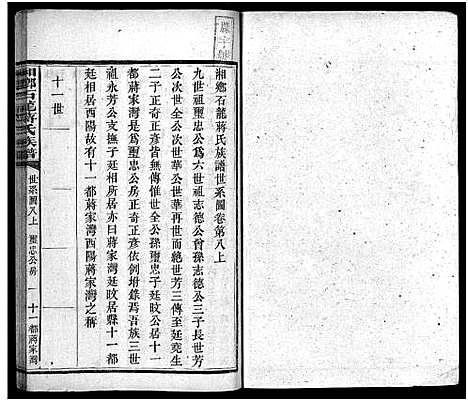 湘鄉石龍蔣氏族譜世系圖卷第八上
九世祖璽忠公為六世祖志德公曾孫志德公三子長世芳
公次世全公次世華公世華再世而絕世芳三傳至廷堯生
二子正奇正彥皆無傳惟世全公孫璽忠子廷旼公居十一
都蔣家灣是為璽忠公房正奇正彥依例坿錄焉吾族三世
祖永芳公支撫子廷相所居亦曰蔣家灣廷旼居縣十一都
廷相居酉陽故有十一都蔣家灣酉陽蔣家灣之稱
十一世
湘鄉石龍蔣氏族譜
世系圖八上
璽忠公房
一
十一都蔣家灣